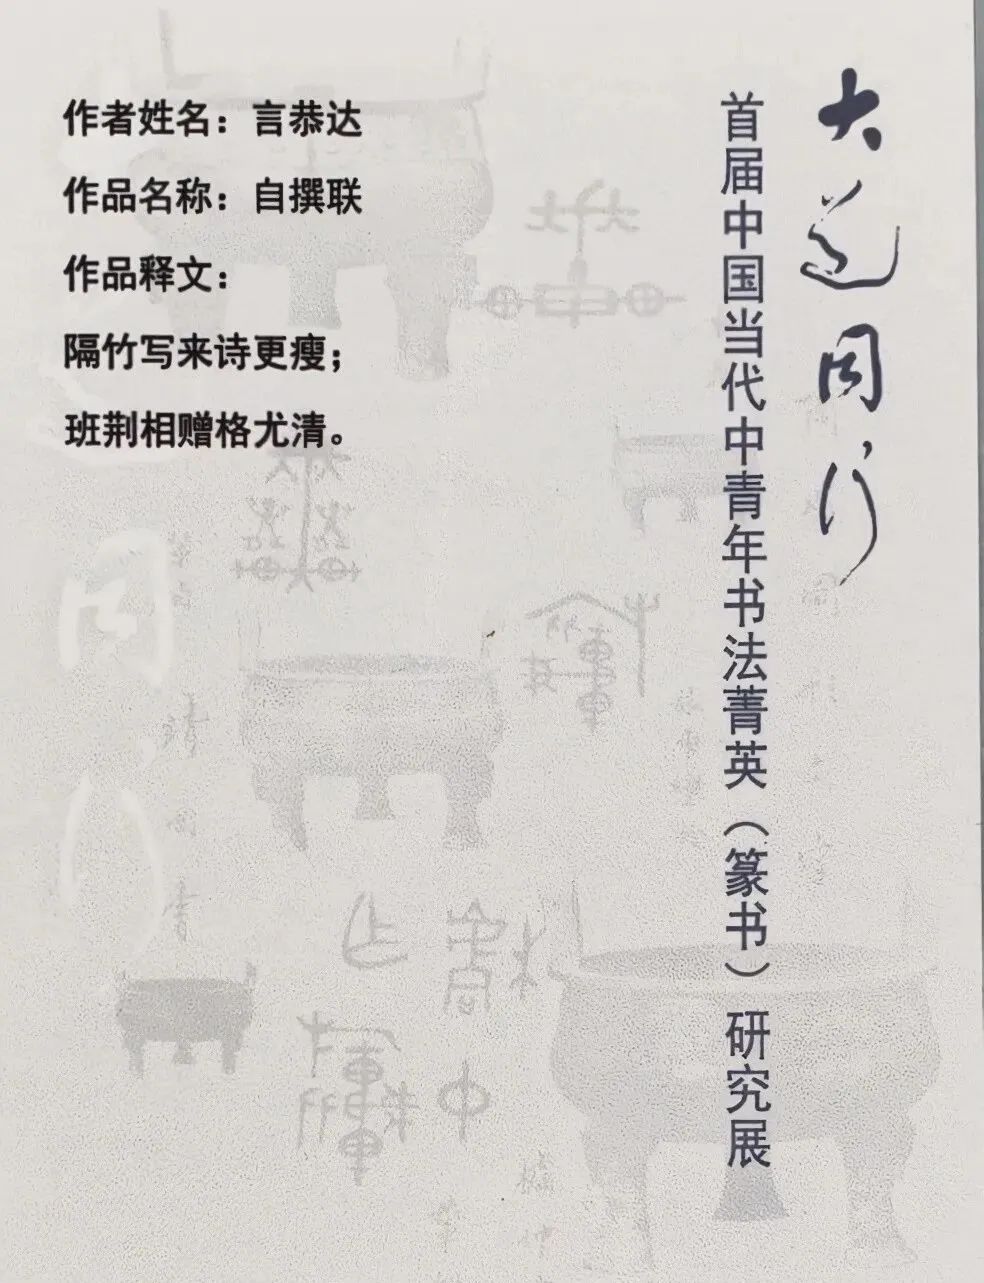 作者姓名：言恭达
作品名称：自撰联
作品释文：
隔竹写来诗更瘦；
班荆相赠格尤清。
大道同行
首届中国当代中青年书法菁英（篆书）研究展